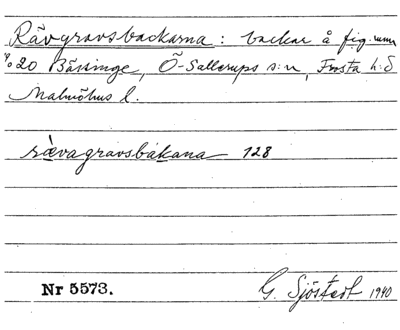 Rävgravsbackarna: backar å fig. num
%20 Bässinge, Ö-Sallerups s:n, Frosta h:d
Malmöhus l.
rävagravsbakana 128
Nr 5573.
G. Sjöstedt 1940